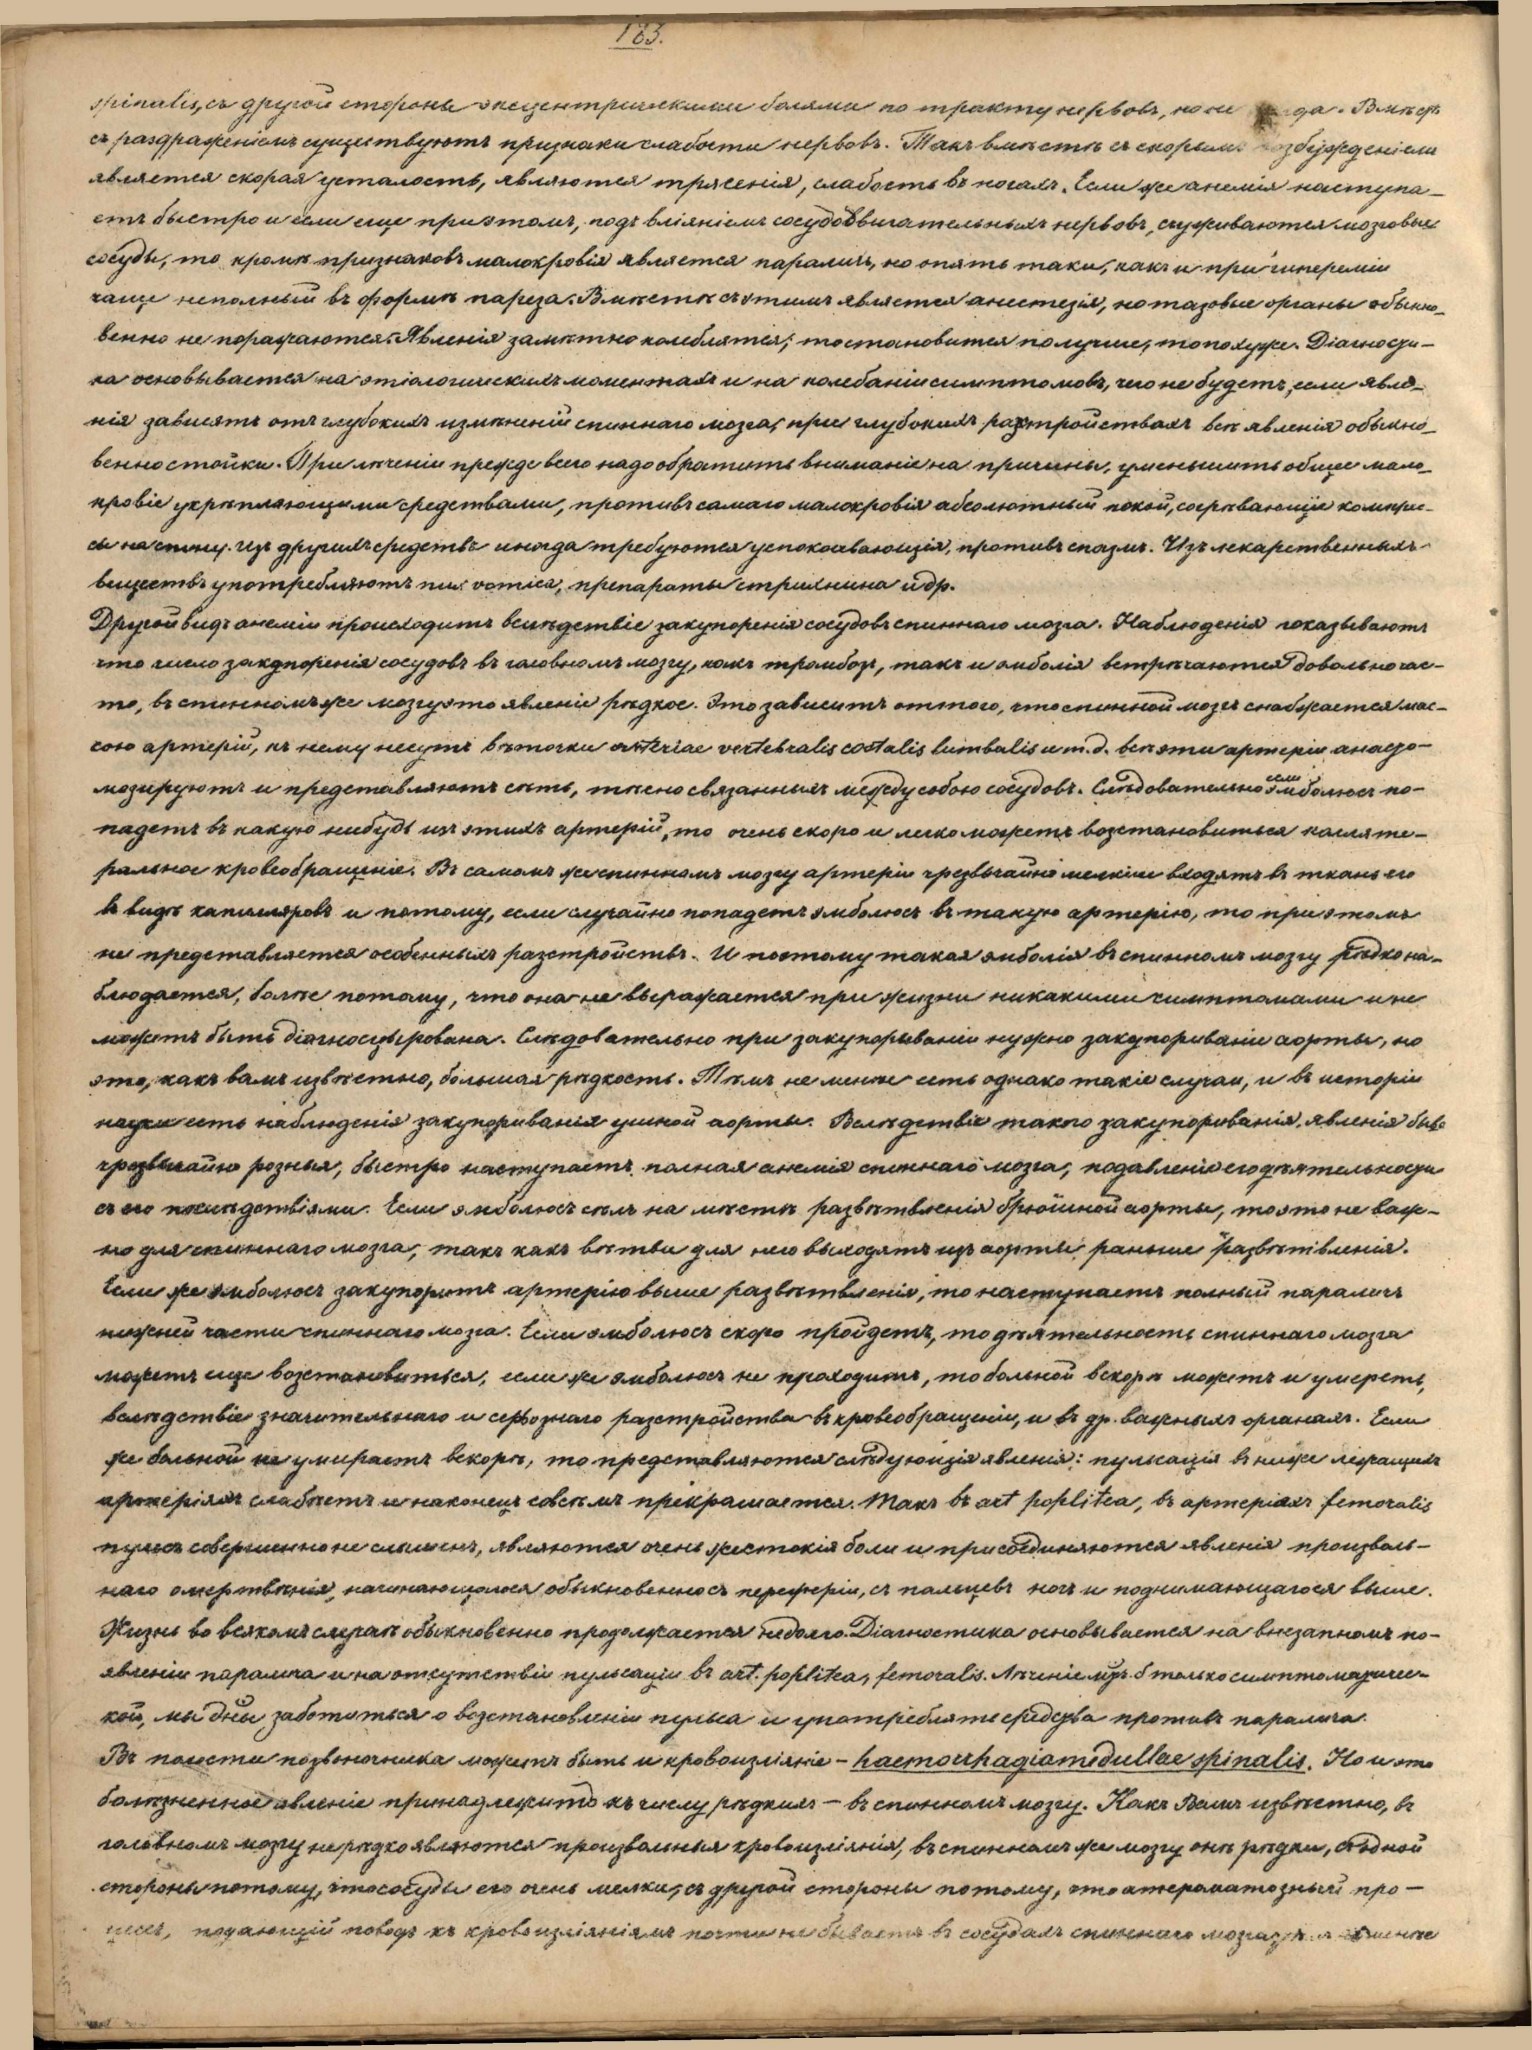 183.
spinalis, съ другой стороны эксцентрическими болями по тракту нервовъ, но не да. Вмѣстѣ
съ раздраженіемъ существуютъ признаки слабости нервовъ. Такъ вмѣстѣ съ скорымъ возбужденіемъ
является скорая усталость, являются трясенія, слабость въ ногахъ. Если же анемія наступа-
етъ быстро и если еще при этомъ, подъ вліяніемъ сосудодвигательныхъ нервовъ, съуживаются мозговые
сосуды, то кромѣ признаковъ малокровія является параличъ, но опять таки, какъ и при гипереміи
чаще неполный въ формѣ пареза. Вмѣстѣ съ этимъ является анестезія, но тазовые органы обыкно-
венно не поражаются. Явленія замѣтно колеблятся; то становится получше, то похуже. Діагности-
ка основывается на этіологическихъ моментахъ и на колебаніи симптомовъ, чего не будетъ, если явле-
нія зависятъ отъ глубокихъ измѣненій спиннаго мозга; при глубокихъ разтройствахъ всѣ явленія обыкно-
венно стойки. При лѣченіи прежде всего надо обратить вниманіе на причины, уменьшить общее мало-
кровіе укрѣпляющими средствами, противъ самаго малокровія абсолютный покой, согрѣвающіе компрес-
сы на спину. Изъ другихъ средствъ иногда требуются успокоивающія, противъ спазмъ. Изъ лекарственныхъ
веществъ употребляютъ nux vomica, препараты стрихнина и др.
Другой видъ анеміи происходитъ вслѣдствіе закупоренія сосудовъ спиннаго мозга. Наблюденія показываютъ
что число закупоренія сосудовъ въ головномъ мозгу, какъ тромбозъ, такъ и эмболія встрѣчаются довольно час-
то, въ спинномъ же мозгу это явленіе рѣдкое. Это зависитъ оттого, что спинной мозгъ снабжается мас-
сою артерій, къ нему несутъ вѣточки arteriae vertebralis costalis lumbalis и т.д. всѣ эти артеріи анасто-
мозируютъ и представляютъ сѣть, тѣсно связанныхъ между собою сосудовъ. Слѣдовательно если эмболюсъ по-
падетъ въ какую нибудь изъ этихъ артерій, то очень скоро и легко можетъ возстановиться коллате-
ральное кровеобращеніе. Въ самомъ же спинномъ мозгу артеріи чрезвычайно мелкія и входятъ въ ткань его
въ видѣ капилляровъ и потому, если случайно попадетъ эмболюсъ въ такую артерію, то при этомъ
не представляется особенныхъ разстройствъ. И поэтому такая эмболія въ спинномъ мозгу рѣдко на-
блюдается, болѣе потому, что она не выражается при жизни никакими симптомами и не
можетъ быть діагносцырована. Слѣдовательно при закупорываніи нужно закупориваніе аорты, но
это, какъ вамъ извѣстно, большая рѣдкость. Тѣмъ не менѣе есть однако такіе случаи, и въ исторіи
науки есть наблюденія закупориванія аорты. Вслѣдствіе такого закупориванія, явленія быв.
чрезвычайно розныя, быстро наступаетъ полная анемія спиннаго мозга, подавленіе его дѣятельности
съ его послѣдствіями. Если эмболюсъ сѣлъ на мѣстѣ развѣтвленія брюшной аорты, то это не важ-
но для спиннаго мозга, такъ какъ вѣтви для него выходятъ изъ аорты раньше развѣтвленія.
Если же эмболюсъ закупоритъ артерію выше развѣтвленія, то наступаетъ полный параличъ
нижней части спиннаго мозга. Если эмболюсъ скоро пройдетъ, то дѣятельность спиннаго мозга
можетъ еще возстановиться, если же эмболюсъ не проходитъ, то больной вскорѣ можетъ и умереть,
вслѣдствіе значительнаго и серьознаго разстройства въ кровеобращеніи, и въ др. важныхъ органахъ. Если
же больной не умираетъ вскорѣ, то представляются слѣдующія явленія: пульсація въ ниже лежащихъ
артеріяхъ слабѣетъ и наконецъ совсѣмъ прекращается. Такъ въ art poplitea, въ артеріяхъ femoralis
пульсъ совершенно не слышенъ, являются очень жестокія боли и присоединяются явленія произволь-
наго омертвѣнія, начинающагося обыкновенно съ переферіи, съ пальцевъ ногъ и поднимающагося выше.
Жизнь во всякомъ случаѣ обыкновенно продолжается недолго. Діагностика основывается на внезапномъ по-
явленіи паралича и на отсутствіи пульсаціи въ art. poplitea, femoralis. Лѣченіе м. б. только симптоматичес-
кой, мы дны заботиться о возстановленіи пульса и употреблять средства противъ паралича.
Въ полости позвоночника можетъ быть и кровоизліяніе – haemorrhagia medullae spinalis. Но и это
болѣзненное явленіе принадлежитъ къ числу рѣдкихъ – въ спинномъ мозгу. Какъ Вамъ извѣстно, въ
головномъ мозгу нерѣдко являются произвольныя кровоизліянія, въ спинномъ же мозгу онѣ рѣдки, съ одной
стороны потому, что сосуды его очень мелки, съ другой стороны потому, что атероматозный про-
цессъ, подающій поводъ къ кровоизліяніямъ почти не бываетъ въ сосудахъ спиннаго мозга